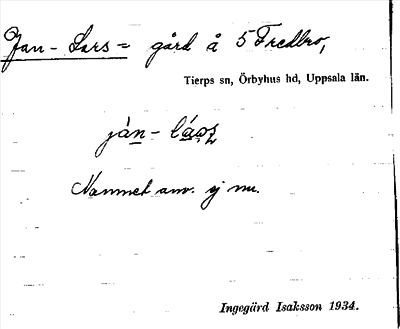 Jan-Lars= gård å 5 Fredbro,
Tierps sn, Örbyhus hd, Uppsala län.
jàn-
Namnet anv. ej nu.
Ingegärd Isaksson 1934.